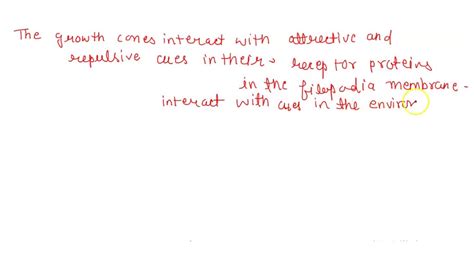 The growth cones interact with attractive and
repulsive cues in their receptor proteins
in the filopodia membrane -
interact with cues in the enviro